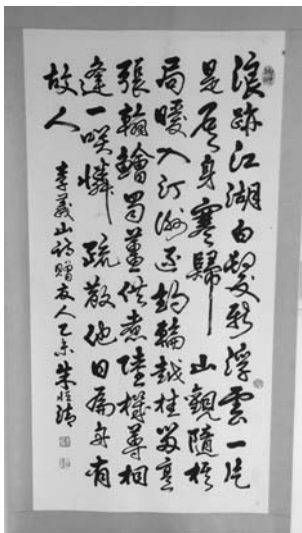 浪跡江湖白髮新浮雲一片
是吾身寒歸山觀隨棋
局暖入汀洲逐釣輪越桂留烹
張翰鱠蜀薑供煮陸機蓴相
逢一咲憐疏散他日扁舟有
故人
李義山詩贈友人乙未朱